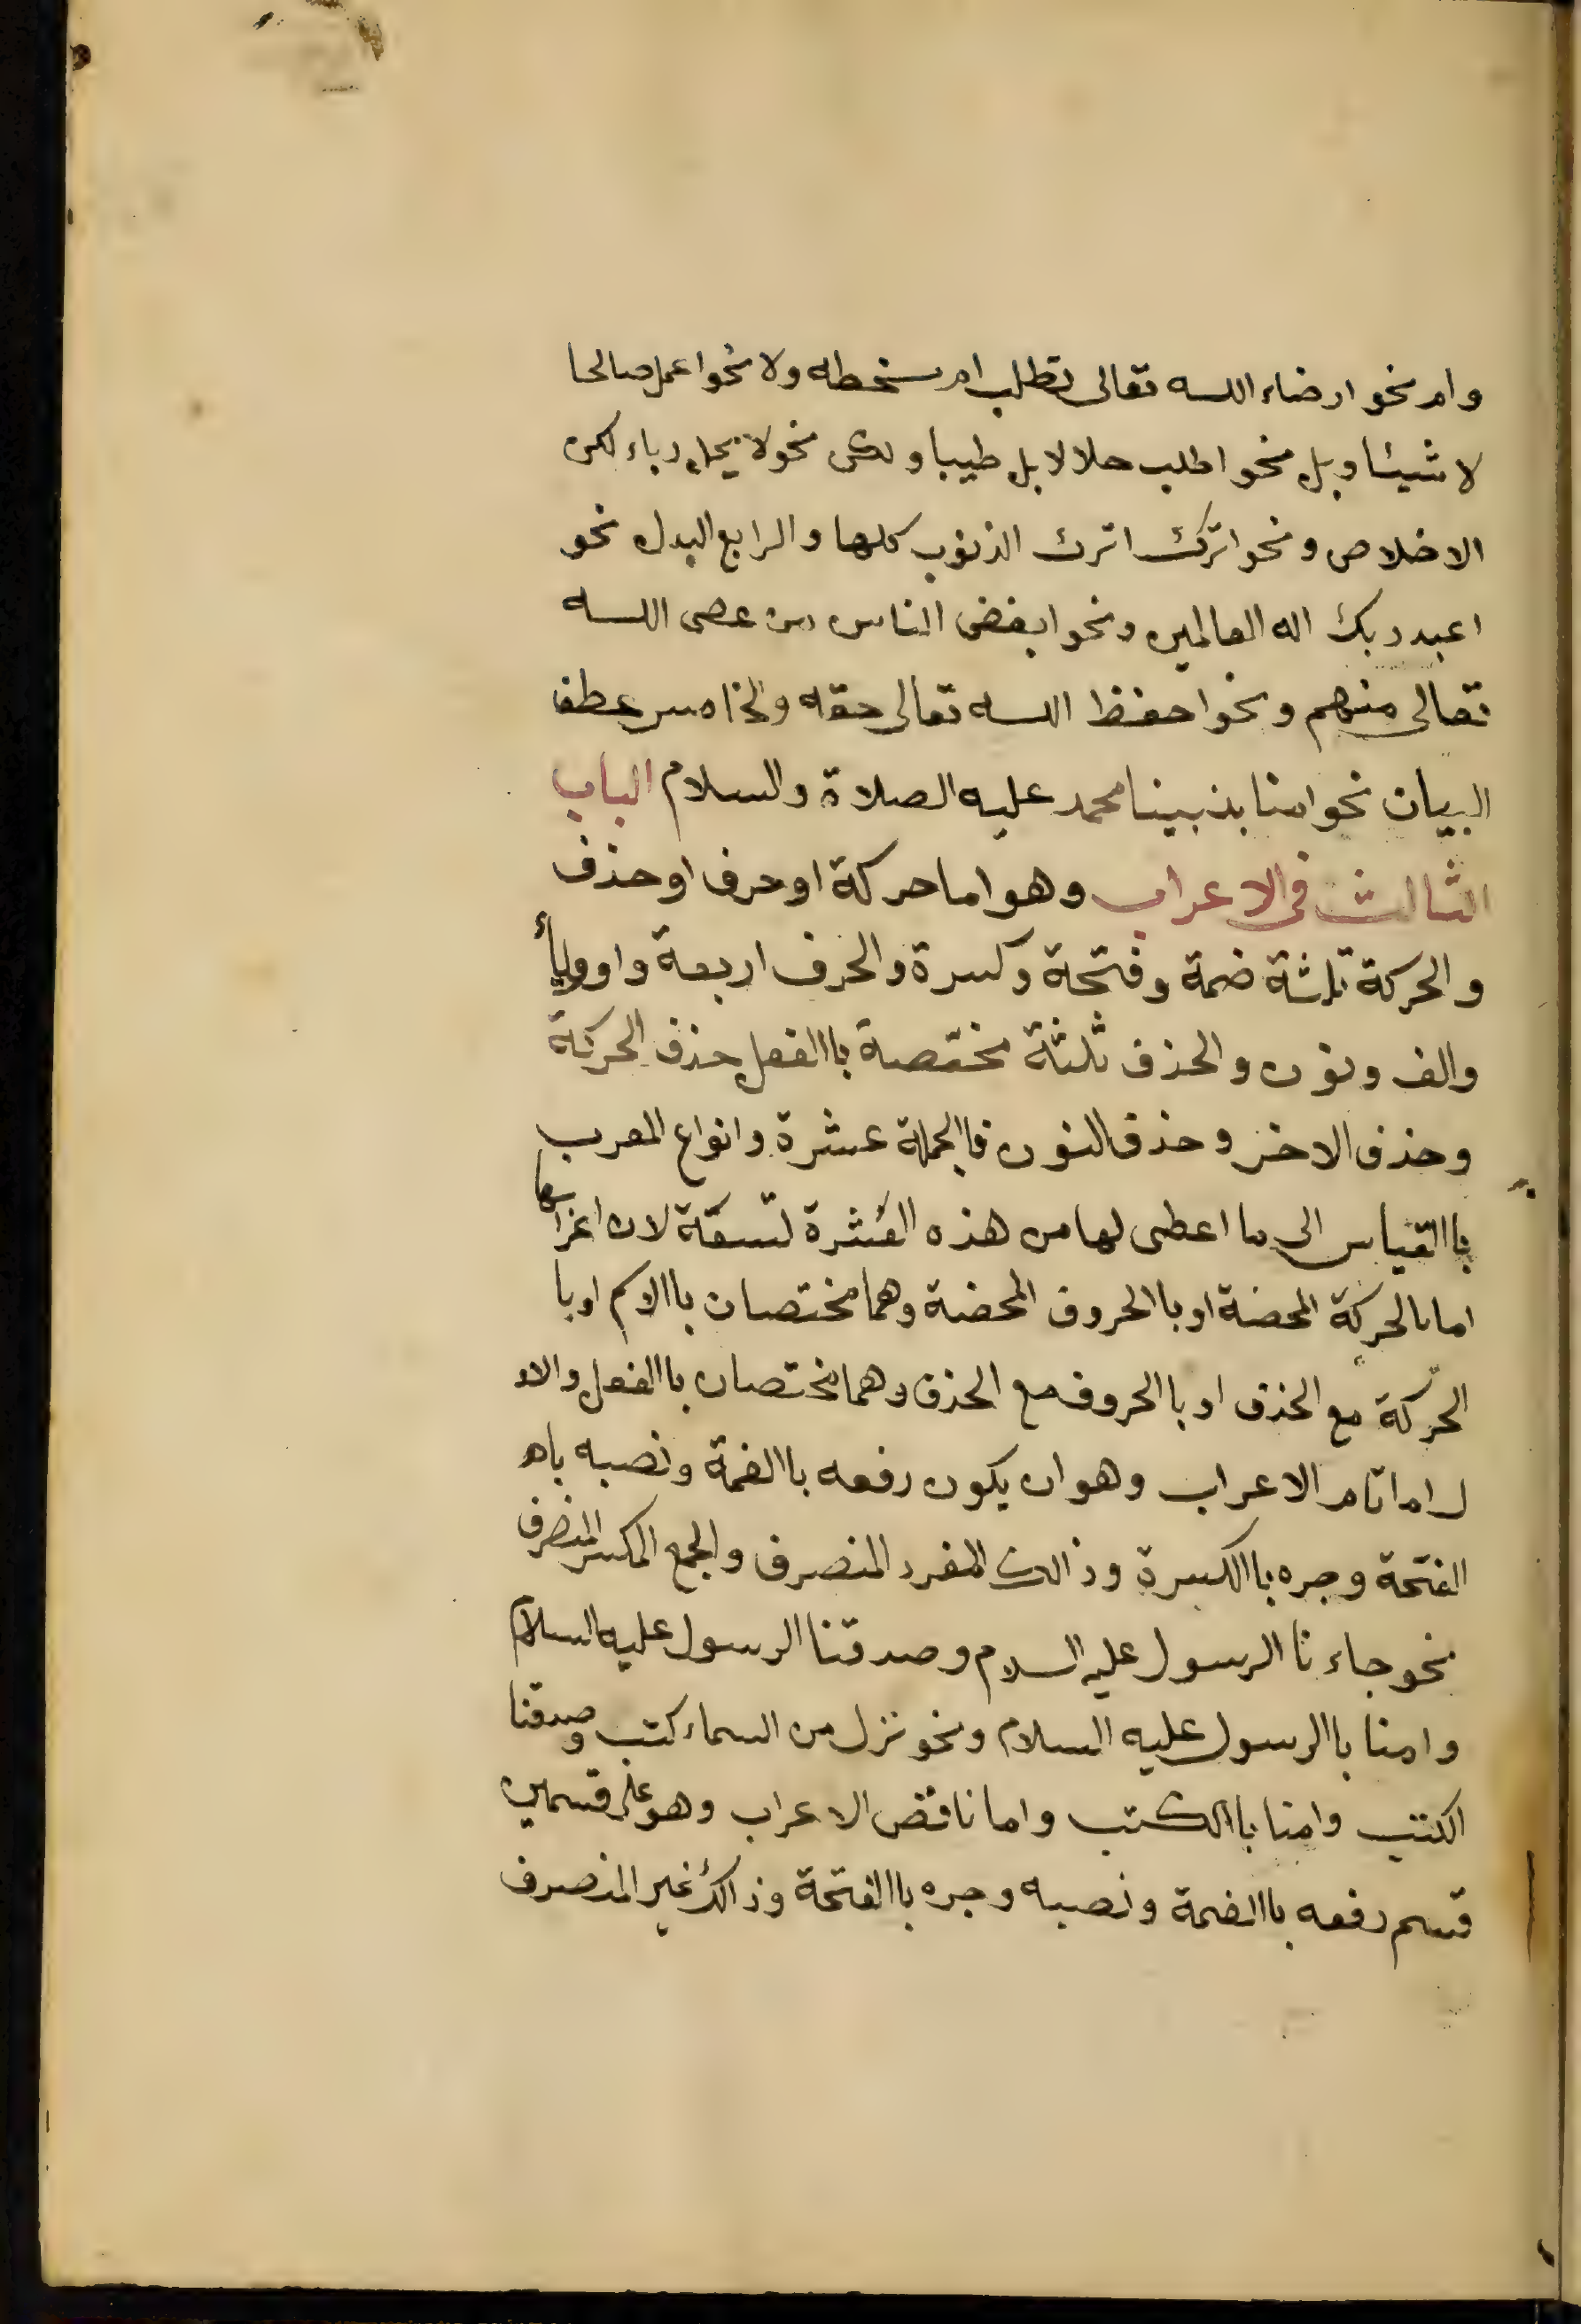 وام نحو ارضاء الله تعالى تطلب ام سخطه ولا نحو اعمل صالحا
لا شيئا وبل نحو اطلب حلالا بل طيبا ولكن نحو لا يحل رياء لكن
الاخلاص ونحو اترك اترك الذنوب كلها والرابع البدل نحو
اعبد ربك اله العالمين ونحو ابغض الناس من عصى الله
تعالى منهم ونحو احفظ الله تعالى حقه والخامس عطف
البيان نحو امنا بنبينا محمد عليه الصلاة والسلام الباب
الثالث فى الاعراب وهو اما حركة او حرف او حذف
والحركة ثلثة ضمة وفتحة وكسرة والحرف اربعة واو وياء
والف ونون والحذف ثلثة مختصة باالفعل حذف الحركة
وحذف الاخر وحذف النون فاالجملة عشرة وانواع المعرب
باالقياس الى ما اعطى لها من هذه العشرة تسعة لان اعرابها
اما باالحركة المحضة او باالحروف المحضة وهما مختصان باالاسم او با
الحركة مع الحذف او باالحروف مع الحذف وهما مختصان باالفعل والاو
ل اما تام الاعراب وهو ان يكون رفعه باالضمة ونصبه با
الفتحة وجره باالكسرة وذالك المفرد المنصرف والجمع المكسر المنصرف
نحو جاءنا الرسول عليه السلام وصدقنا الرسول عليه السلام
وامنا باالرسول عليه السلام ونحو نزل من السماء كتب وصدقنا
الكتب وامنا باالكتب واما ناقص الاعراب وهو على قسمين
قسم رفعه باالضمة ونصبه وجره باالفتحة وذالك غير المنصرف